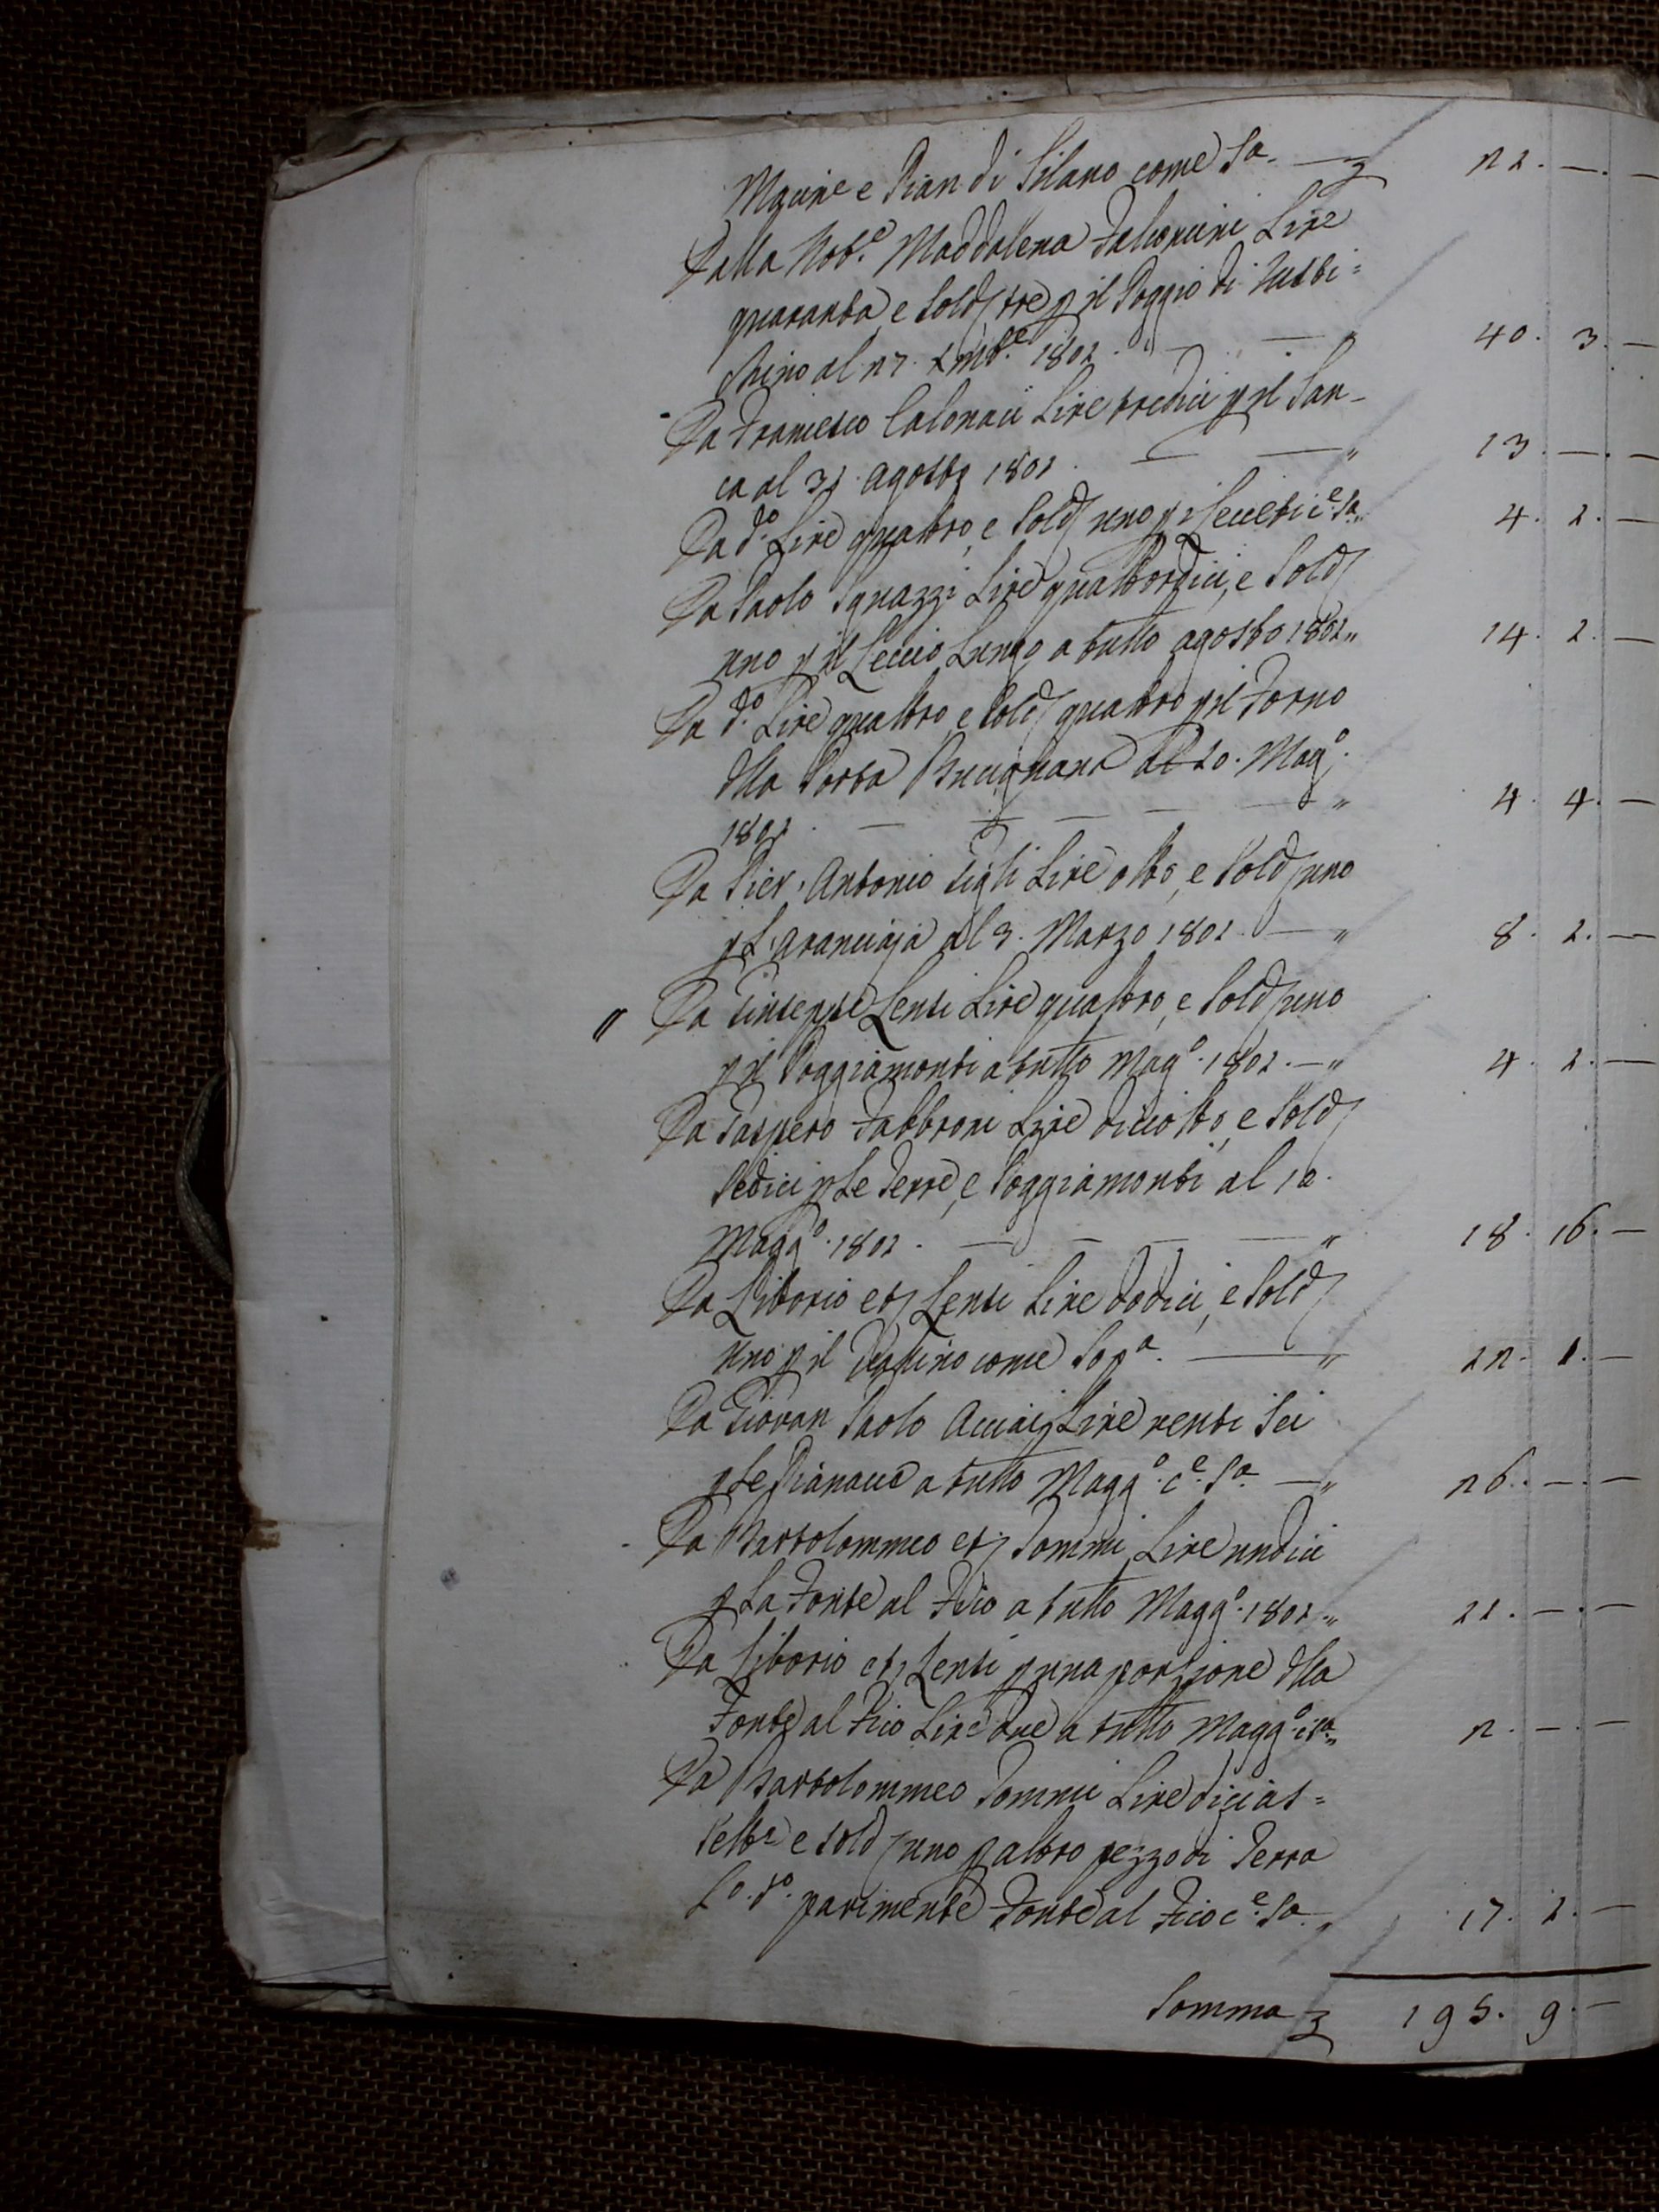 e Pian di Silano come Sa. — 22. —. —
Dalla Nob.e Maddalena Falconcini Lire
quaranta, e Sold tre p il Poggio di
al 27. 1802. — — " 40. 3. —
Da Francesco Calonaci Lire tredici p il San-
ca al 31. Agosto 1801. — — " 13. —. —
Da d.o Lire quattro, e Sold uno p i Lecceti c.e Sa. " 4. 1. —
Da Paolo Sguazzi Lire quattordici, e Sold
uno p il Leccio Lungo a tutto agosto 1801 " 14. 1. —
Da d.o Lire quattro, e Sold quattro p il Forno
dlla Porta al 20. Mag.o
1801. — — — — — " 4. 4. —
Da Pier' Antonio Tigli Lire otto, e Sold uno
p L'aranciaja al 3. Marzo 1801. — " 8. 1. —
" Da Giuseppe Lensi Lire quattro, e Sold uno
p il Poggiamonti a tutto Mag.o 1801. — " 4. 1. —
Da Gaspero Fabbroni Lire diciotto, e Sold
Sedici p Le Terre, e Poggiamonti al 10.
Magg.o 1801. — — — — " 18. 16. —
Da Liborio et Lensi Lire dodici, e Sold
uno p il come Sop.a — " 12. 1. —
Da Giovan Paolo Acciaj Lire venti Sei
p Le Pianacce a tutto Magg.o c.e Sa. — " 26. —. —
Da Bartolommeo et Tommi Lire undici
p La Fonte al Fico a tutto Magg.o 1801. " 11. —. —
Da Liborio et Lensi p una porzione dlla
Fonte al Fico Lire due a tutto Magg.o c. Sa. " 2. —. —
Da Bartolommeo Tommi Lire dicias=
sette e Sold uno p altro pezzo di Terra
L.o d.o parimente Fonte al Fico c.e Sa. " 17. 1. —
Somma 195. 9. —